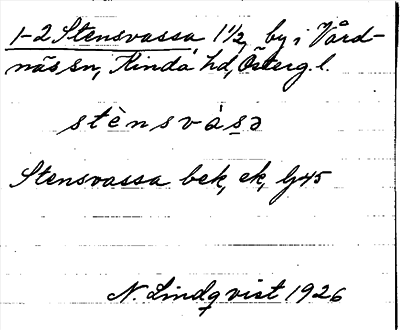 1-2 Stensvassa 1 1/2, by i Vård-
näs sn, Kinda hd, Österg. l.
stènsvása
Stensvassa bek, ek, Gj45
N. Lindqvist 1926